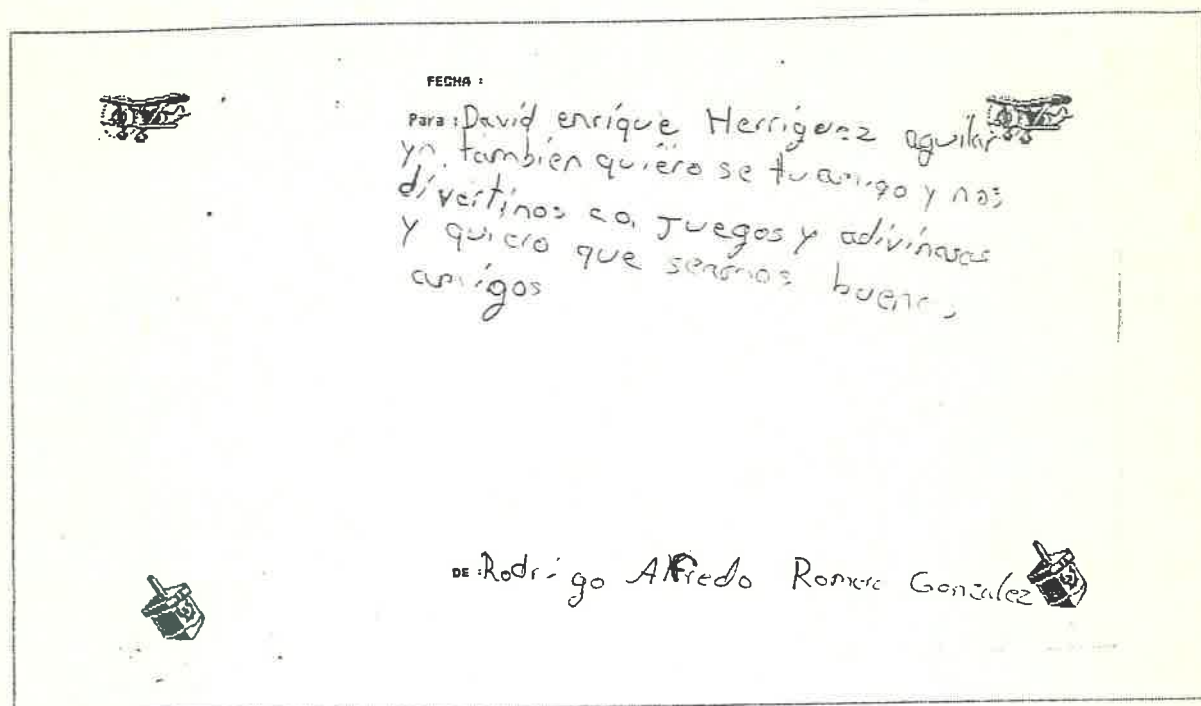 FECHA :
Para : David enrique Herrigenz aguilar
yo tambien quiero se tu amigo y nos
divertinos co juegos y adivinasas
y quiero que seamos buenos
amigos
DE : Rodrigo Alfredo Romero Gonzalez